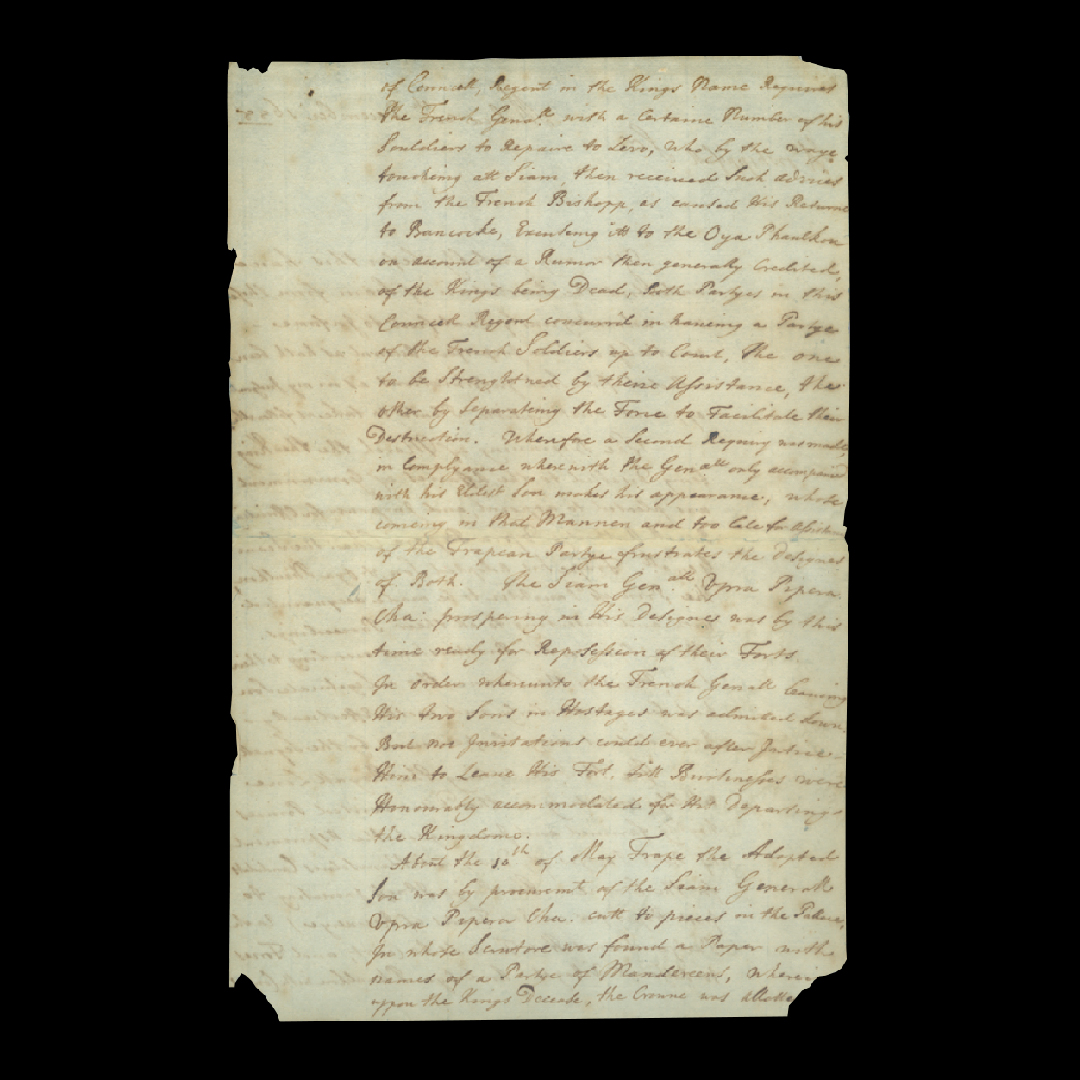 of Councell, Regent in the Kings Name Requires
the French Genall. with a Certaine Number of his
Souldiers to Repaire to Levo, who by the waye
touching att Siam, then received Such advices
from the French Bishopp, as caused His Returne
to Bancocke, Excuseing itt to the Oya Phaulkon
on account of a Rumor then generally Credited,
of the Kings being Dead, Both Partyes in this
Councell Regent concurrd in haveing a Partye
of the French Soldiers up to Court, the one
to be Strengthned by theire Assistance, the
other by Separateing the Force to Facilitate their
Destruction. Wherefore a Second Requiry was made,
in Complyance wherewith the Genall only accompani'd
with his Eldest Son makes his appearance, whose
comeing in that Mannen and too late
of the Trapean Partye frustrates the Designes
of Both. the Siam Genall Vpra Pipera
Cha: prospering in His Designes was by this
time ready for Repossession of their Forts
In order whereunto the French Genall leaving
His two Sons in Hostages was admitted down.
But not Invitations could ever after Intice
Hime to Leave His Fort. butt Buisinesses were
Honourably accommodated for His Departing
the Kingdome.
About the 10th of May Trape the Adopted
Son was by procurement of the Siam Generall
Vpra Pipera Cha. cutt to pieces in the Palace,
In whose Scrutore was found a Paper with
names of a Partye of Mandereens, wherein
uppon the Kings Decease, the Crowne was